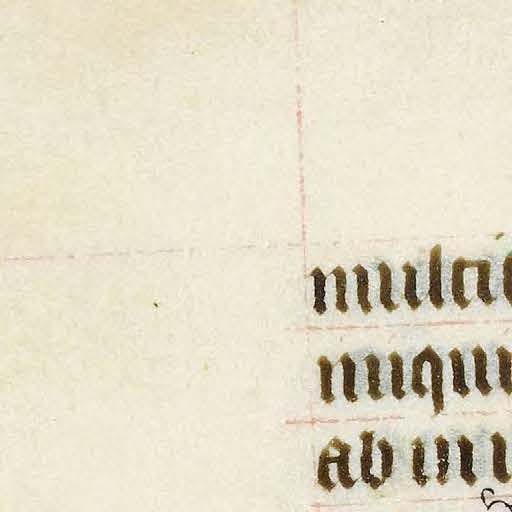 multi
iniqui
ab ini